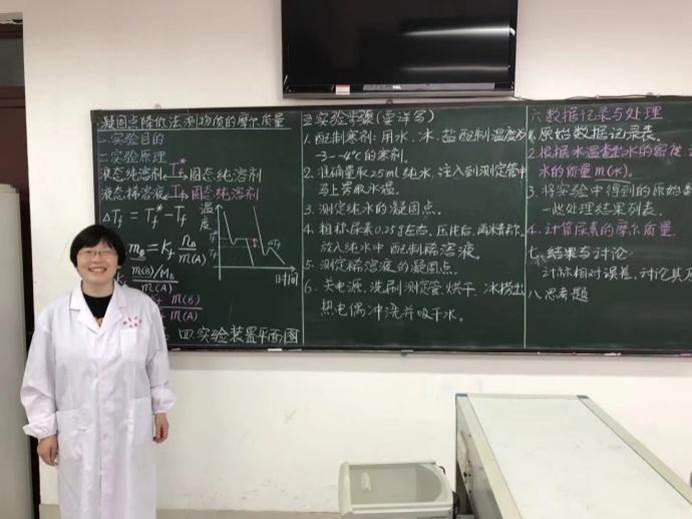 凝固点降低法测物质的摩尔质量
一.实验目的
二.实验原理
液态纯溶剂 Tf* 固态纯溶剂
液态稀溶液 Tf 固态纯溶剂
ΔTf = Tf* - Tf
mB = Kf nB/m(A)
m(B)/MB
m(A)
m(B)
m(A)
温度
时间
四.实验装置平面图
三.实验步骤(要详写)
1.配制寒剂:用水、冰、盐配制温度为
-3~-4℃的寒剂。
2.准确量取25ml纯水,注入到测定管中
3.测定纯水的凝固点。
4.粗称尿素0.25g左右,压片后,再准确称
放入纯水中配制稀溶液。
5.测定稀溶液的凝固点。
6.关电源,洗刷测定管、烘干、冰捞出
热电偶冲洗并吸干水。
六.数据记录与处理
1.原始数据记录表。
2.根据水温查出水的密度
水的质量m(水)。
3.将实验中得到的原始数
一些处理结果列表。
4.计算尿素的摩尔质量
七.结果与讨论
计标相对误差,讨论其
八.思考题